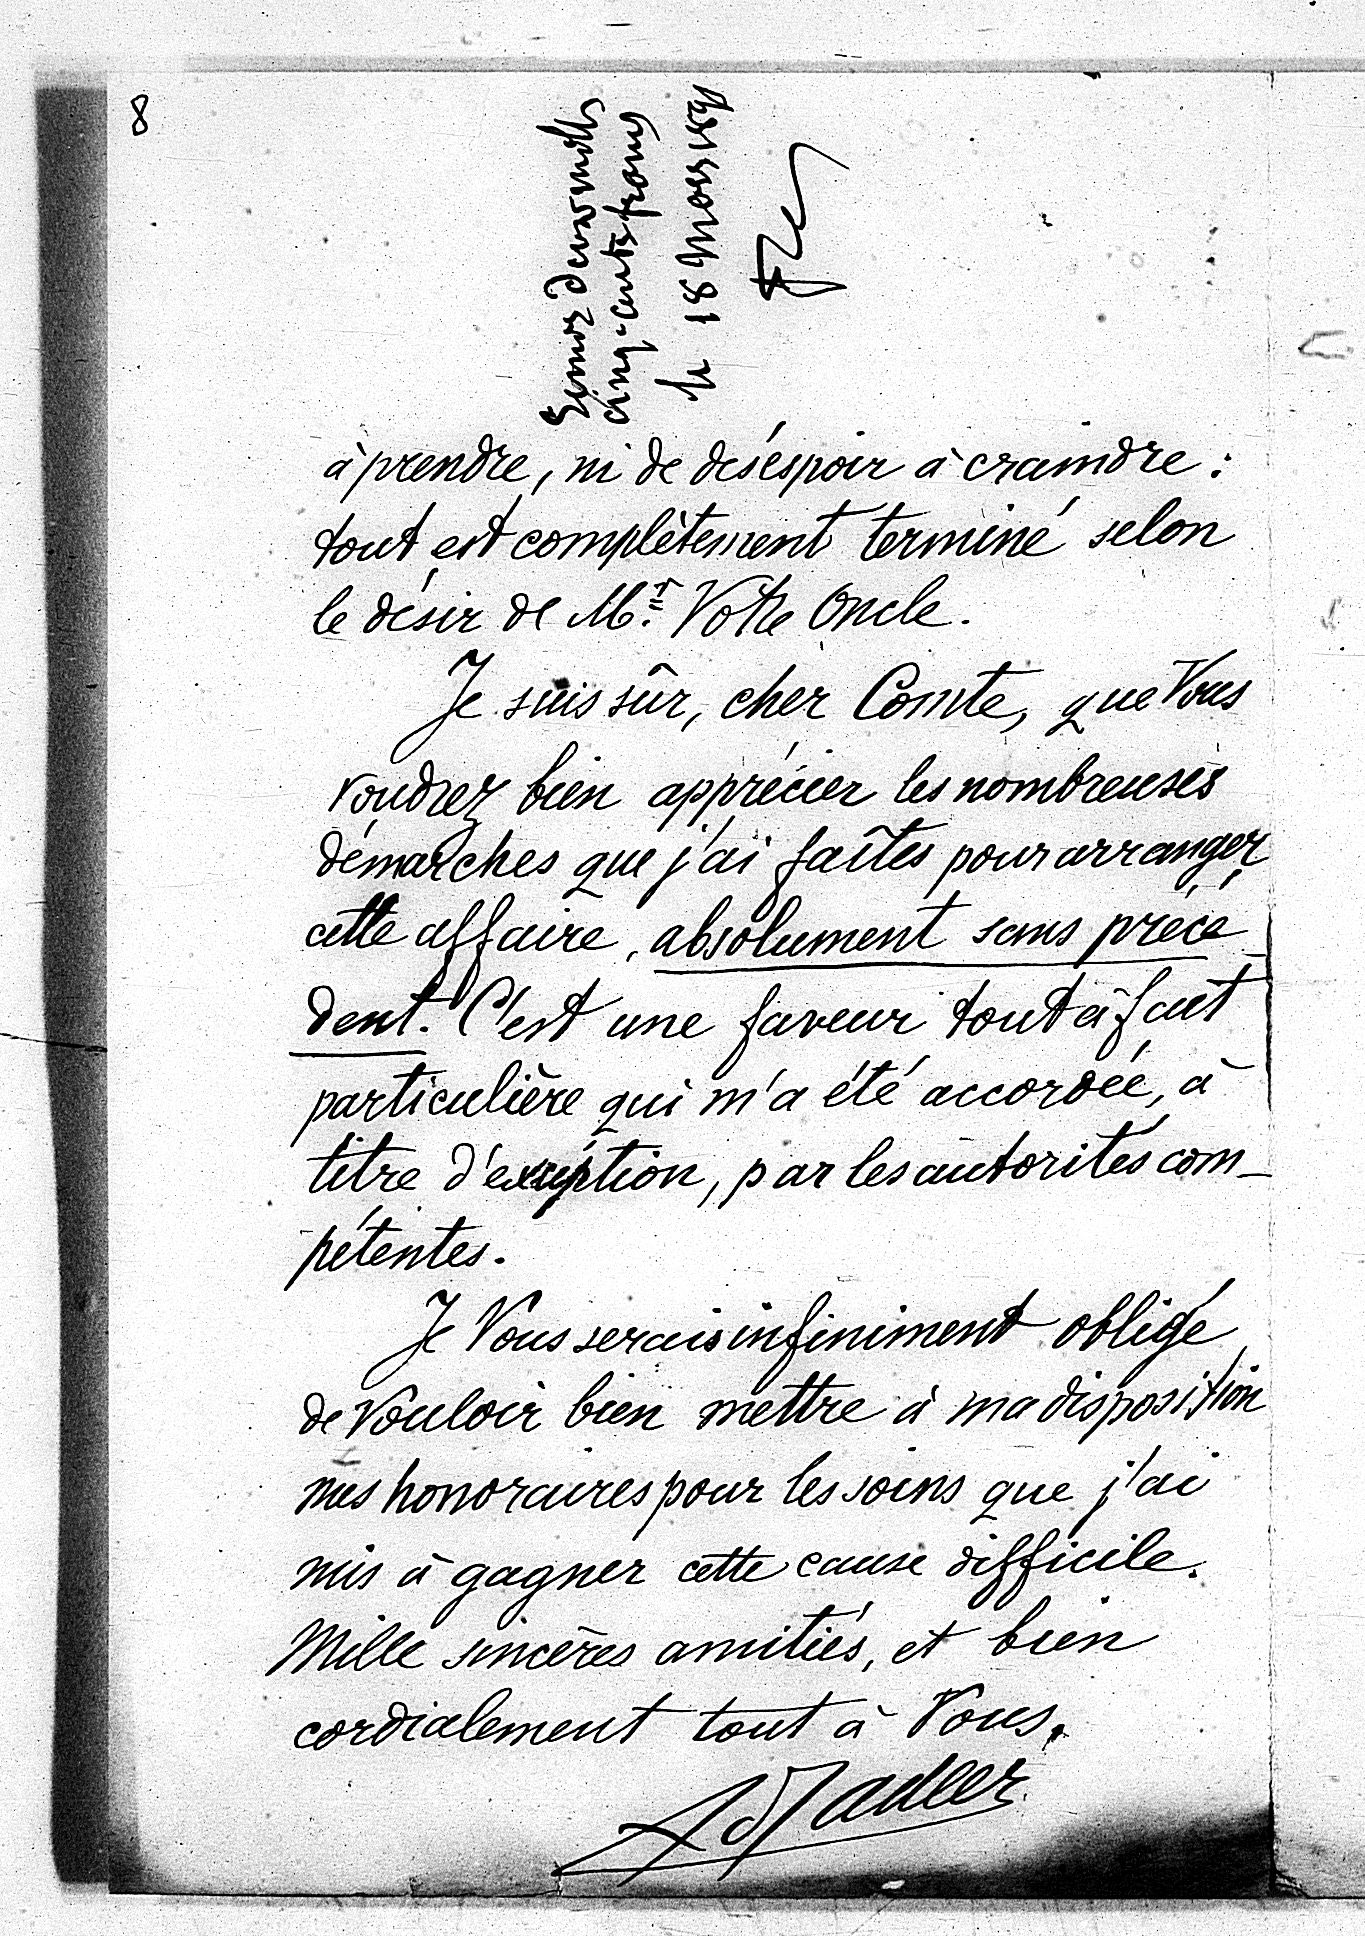 8
Remis deux mille
cinq-cents francs
le 18 Mars 189
à prendre, ni de désespoir à craindre :
tout est complètement terminé selon
le désir de Mr. Votre Oncle.
Je suis sûr, cher Comte, que Vous
voudrez bien apprécier les nombreuses
démarches que j'ai faîtes pour arranger
cette affaire, absolument sans précé_
dent. C'est une faveur tout à fait
particulière qui m'a été accordée, à
titre d'exception, par les autorités com_
pétentes.
Je Vous serais infiniment obligé
de Vouloir bien mettre à ma disposition
mes honoraires pour les soins que j'ai
mis à gagner cette cause difficile.
Mille sincères amitiés, et bien
cordialement tout à Vous.
Adler